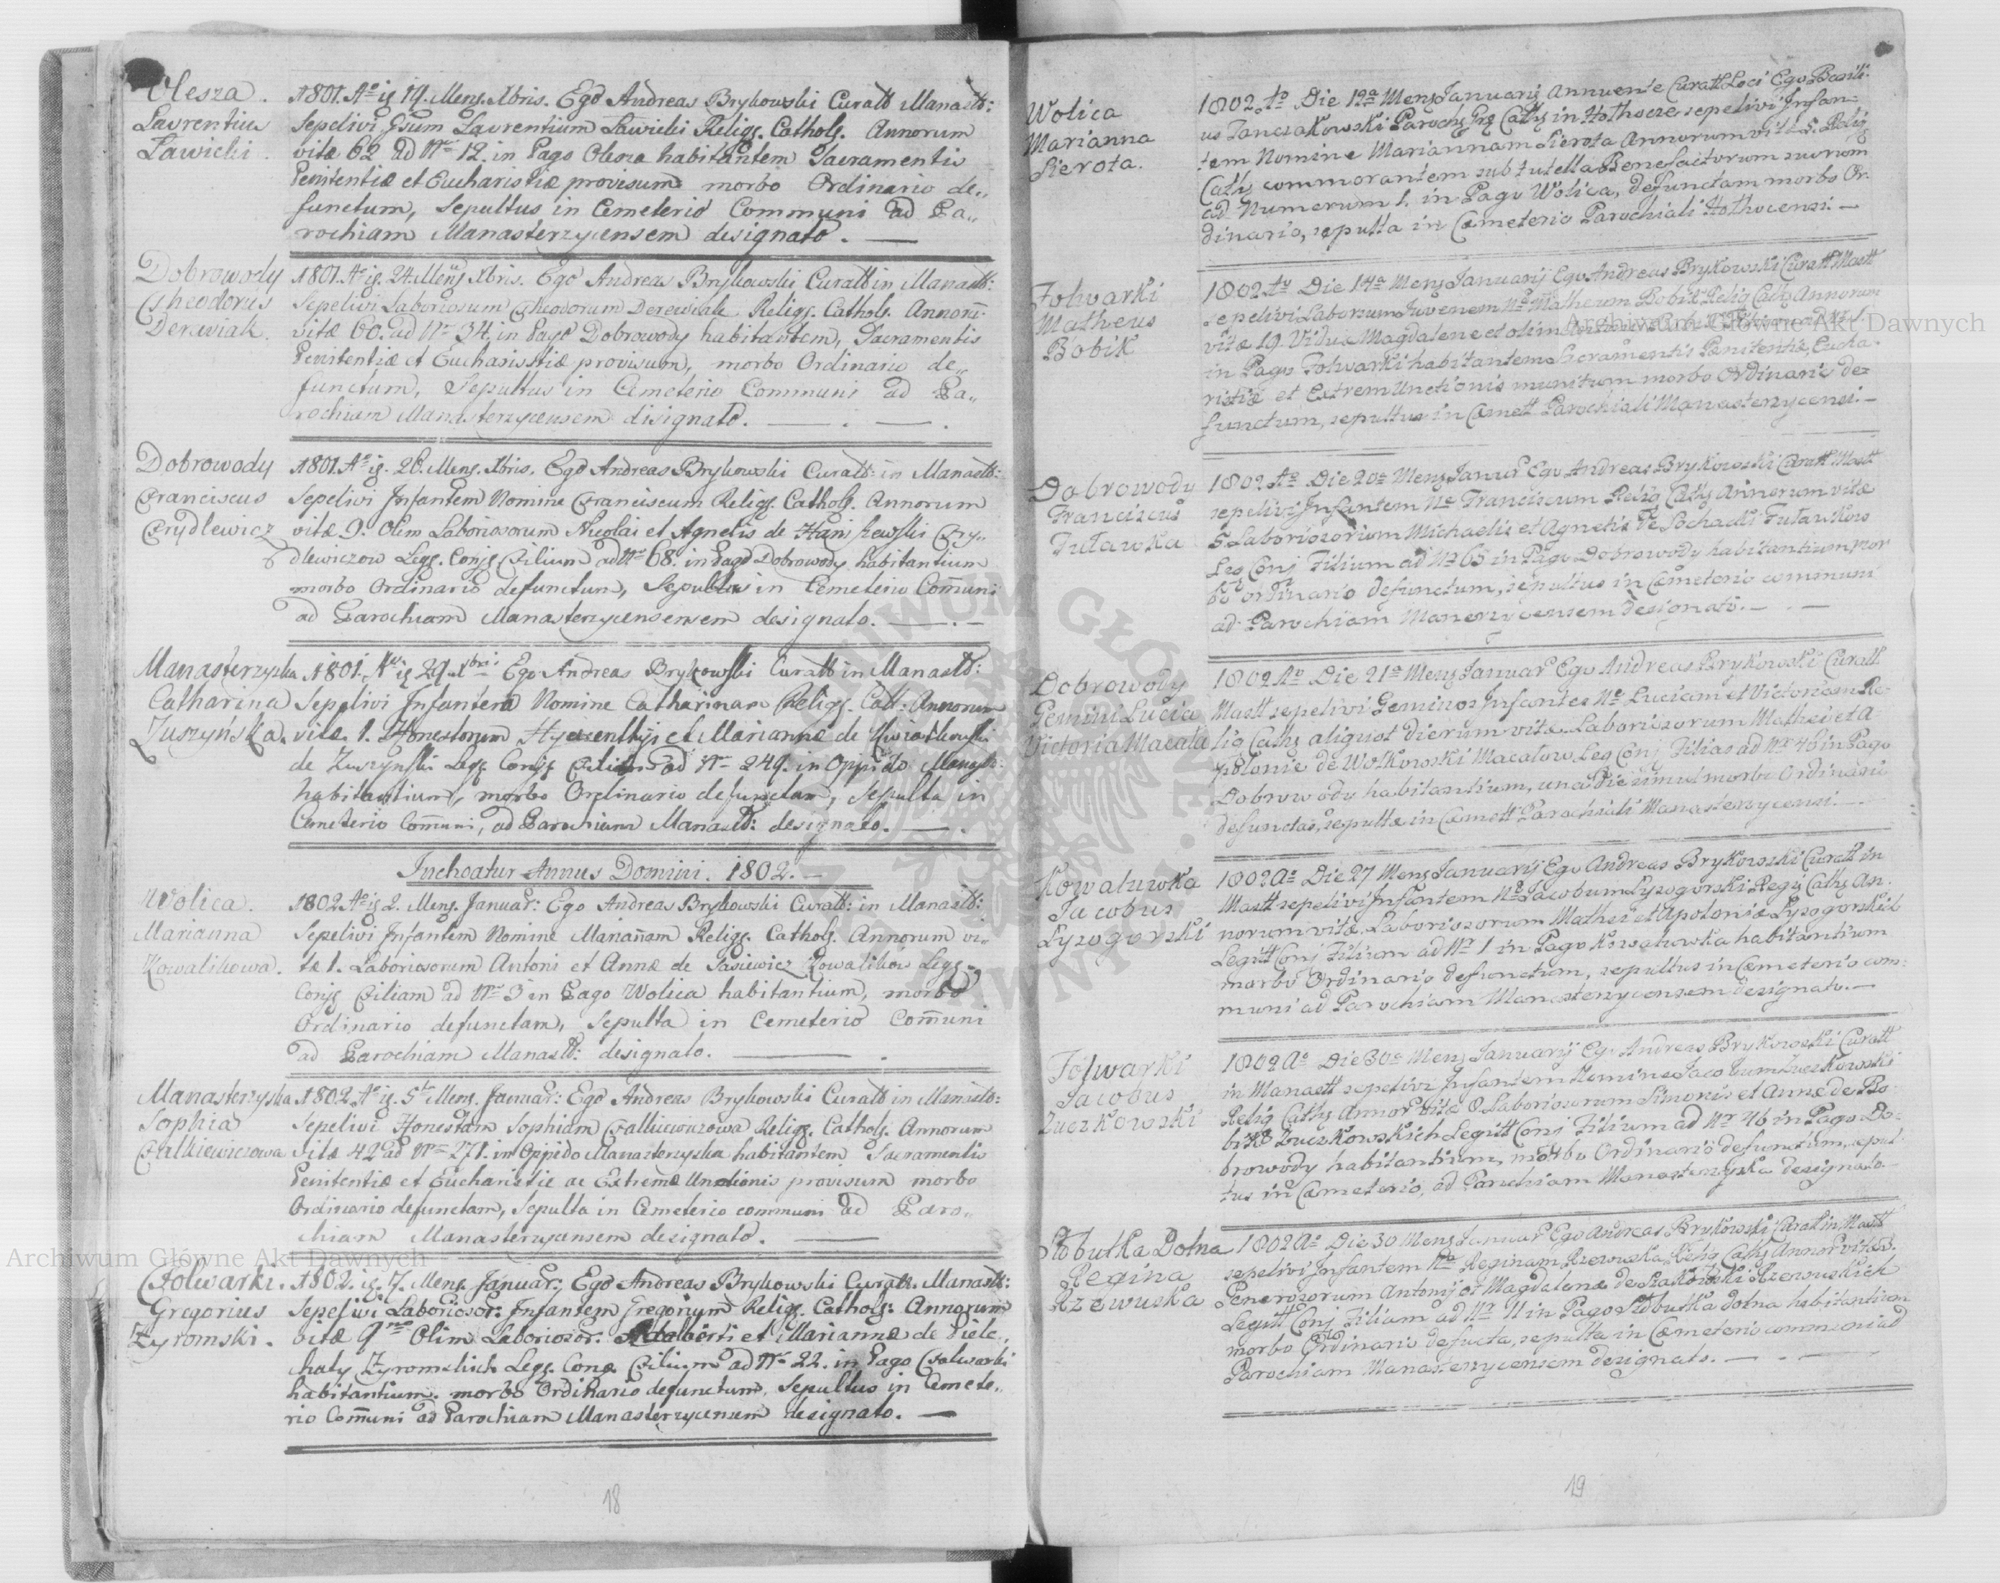 Olesza.
Laurentius
Lawicki.
1801. Aō ig 19. Mens. Xbris. Ego Andreas Brykowski Curatt Manastt:
Sepelivi Laurentium Lawicki Religs. Cathols. Annorum
vitæ 62 ad Nr 12. in Pago Olesza habitantem Sacramentis
Penitentiæ et Eucharistiæ provisum morbo Ordinario de„
functum, Sepultus in Cemeterio Communi ad Pa„
rochiam Manasterzycensem designato. —
Dobrowody
Theodorus
Derewiak.
1801. Aō ig. 24. Mens Xbris. Ego Andreas Brykowski Curatt in Manastt:
Sepelivi Laboriosum Theodorum Derewiak Religs. Cathols. Annorū
vitæ 60. ad Nr 34. in Pago Dobrowody habitantem, Sacramentis
Penitentiæ et Eucharisstiæ provisum, morbo Ordinario de„
functum, Sepultus in Cemeterio Communi ad Pa„
rochiam Manasterzycensem disignato. — . — .
Dobrowody
Franciscus
Frydlewicz
1801. Aō ig. 26. Mens. Xbris. Ego Andreas Brykowski Curatt: in Manastt:
Sepelivi Infantem Nomine Franciscum Religs. Cathols. Annorum
vitæ 9. Olim Laboriosorum Nicolai et Agnetis de Fry„
dlewiczow Legs. Conjs Filium ad Nr 68. in Pago Dobrowody habitantium
morbo Ordinario defunctum, Sepultus in Cemeterio Com̄uni
ad Parochiam Manasterzycensensem designato. — . —
Manasterzyska
Catharina
Zuszyńska.
1801. Aō ig 29. Xbris Ego Andreas Brykowski Curatt in Manastt:
Sepelivi Infantem Nomine Catharinam Religs. Catt: Annorum
vitæ 1. Honestorum Hyacenthji et Mariannæ de
de Zuszynski Legs Conjs Filiam ad Nr 249. in Oppido Manastt:
habitantium, morbo Ordinario defunctam, Sepulta in
Cemeterio Com̄uni, ad Parochiam Manastt: designato. — .
Inchoatur Annus Domini. 1802. —
Wolica.
Marianna
Kowalikowa.
1802 Aō ig 2. Mens. Januar: Ego Andreas Brykowski Curatt: in Manastt:
Sepelivi Infantem Nomine Marian̄am Religs. Cathols. Annorum vi„
tæ 1. Laboriosorum Antoni et Annæ de Sasiewicz Kowalikow Legs.
Conjs Filiam ad Nr 3 in Pago Wolica habitantium, morbo
Ordinario defunctam, Sepulta in Cemeterio Com̄uni
ad Parochiam Manastt: designato. — .
Manasterzyska
Sophia
Falkiewiczowa
1802. Aō ig. 5t Mens. Januar: Ego Andreas Brykowski Curatt in Manastt:
Sepelivi Honestam Sophiam Falkiewiczowa Religs. Cathols. Annorum
Vitæ 42 ad Nr 271. in Oppido Manasterzyska habitantem Sacramentis
Penitentiæ et Eucharistiæ ac Extremæ Unctionis provisum morbo
Ordinario defunctam, Sepulta in Cemeterio communi ad Paro„
chiam Manasterzycensem designato. —
Folwarki.
Gregorius
Zyromski.
1802. ig. 7. Mens. Januar: Ego Andreas Brykowski Curatt. Manastt:
Sepelivi Laboriosor: Infantem Gregorium Religs. Cathols: Annorum
vitæ 9no Olim Laboriosor: Adalberti et Mariannæ de Piele„
chaty Zyromskich Legs. Conæ Filium ad Nr 22. in Pago Folwarki
habitantium. morbo Ordinario defunctum. Sepultus in Cemete„
rio Com̄uni ad Parochiam Manasterzycensem designato. —
18
Wolica
Marianna
Sierota.
1802. Aō Die 12a Mens Januarij Annuente Curatt Loci Ego Basili-
us Tanczakowski Parochs Grę Caths in Hothocze sepelivi Infan-
tem Nomine Mariannam Sierota Annorum vitæ 5. Relig
Caths commorantem sub tutella Benefactorum suorum
ad Numerum 1. in Pago Wolica, defunctam morbo Or-
dinario, sepulta in Cæmeterio Parochiali Hothocensi. —
Folwarki
Matheus
Bobik
1802 Aō Die 14a Mens Januarij Ego Andreas Brykowski Curatt Mastt
sepelivi Laborsum Juvenem Ne Matheum Bobik Relig Caths Annorum
vitæ 19. Viduæ Magdalenæ et olim
in Pago Folwarki habitantem Sacramentis Pænitentiæ, Eucha-
ristiæ et Extrem Unctionis munitum morbo Ordinario de=
functum, sepultus in Cæmett Parochiali Manasterzycensi. —
Dobrowody
Franciscus
Fuławka
1802 Aō Die 20a Mens Januar Ego Andreas Brykowski Curatt Mastt
sepelivi Infantem Ne Franciscum Relig Caths Annorum vitæ
5. Laboriosorum Michaelis et Agnetis de Sochacki Fuławkow
Leg Conj Filium ad Nr 65 in Pago Dobrowody habitantium mor
bo ordinario defunctum, sepultus in Cæmeterio communi
ad Parochiam Manerzycensem designato. — . —
Dobrowody
Gemini Lucia
Victoria Macała
1802 Aō Die 21a Mens Januar Ego Andreas Brykowski Curatt
Mastt sepelivi Geminos Infantes Ne Luciam et Victoriam Re-
lig Caths aliquot dierum vitæ Laboriosorum Mathei et A
poloniæ de Wołkowski Macałow Leg Conj Filias ad Nr 46 in Pago
Dobrowody habitantium, una Die simul morbo Ordinario
defunctas, sepultæ in Cæmett Parochiali Manasterzycensi. —
Kowalowka
Jacobus
Lyzogorski
1802 Aō Die 27 Mens Januarij Ego Andreas Brykowski Curatt in
Mastt sepelivi Infantem Ne Jacobum Lyzogorski Relig Caths An-
norum vitæ, Laboriosorum Mathei et Apoloniæ Lyzogorskich
Legitt Conj Filium ad Nr 1 in Pago Kowalowka habitantium
morbo Ordinario defunctum, sepultus in Cæmeterio com-
muni ad Parochiam Manasterzycensem designato. —
Folwarki
Jacobus
Zuczkowski
1802 Aō Die 30a Mens Januarij Eg. Andreas Brykowski Curatt
in Manastt sepelivi Infantem Nomine Jacobum Zuczkowski
Relig Caths Annor vitæ 0. Laboriosorum Simonis et Annæ de Bo-
bikow Zuczkowskich Legitt Conj Filium ad Nr 46 in Pago Do-
browody habitantium, morbo Ordinario defunctum, sepul-
tus in Cæmeterio, ad Parochiam Manasterzyska designato —
Słobutka Dolna
Regina
Rzewuska
1802 Aō Die 30 Mens Januar Ego Andreas Brykowski Curatt in Mastt
sepelivi Infantem Ne Reginam Rzewuska Relig Caths Annor vitæ 3.
Generosorum Antonij et Magdalenæ de Rzewuskich
Legitt Conj Filiam ad Nr 11 in Pago Słobutka dolna habitantium
morbo Ordinario defucta, sepulta in Cæmeterio communi ad
Parochiam Manasterzycensem designato. — . —
19
Archiwum Główne Akt Dawnych
Archiwum Główne Akt Dawnych
ARCHIWUM GŁÓWNE AKT DAWNYCH